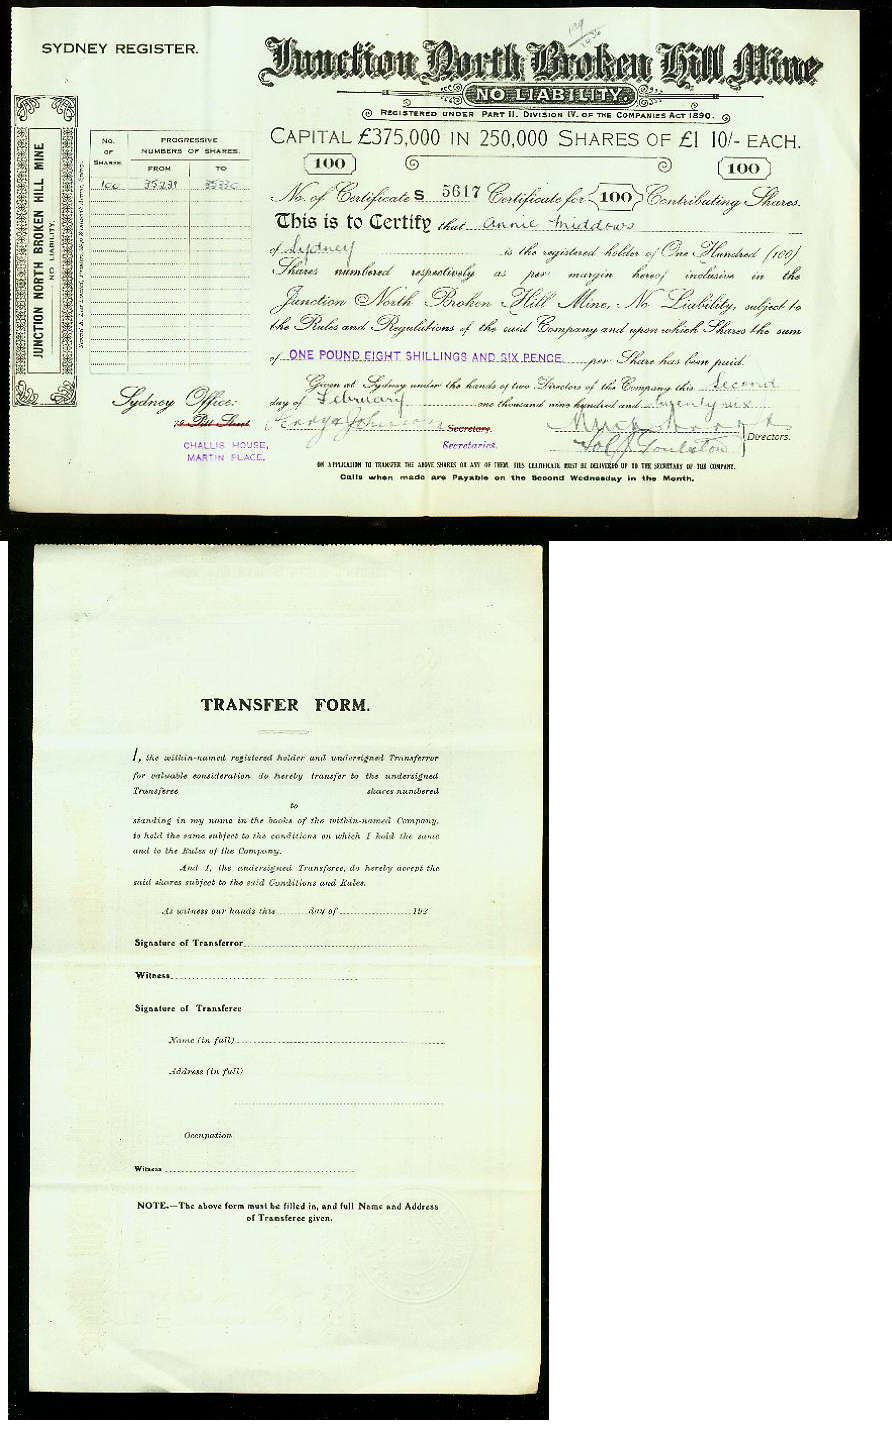 SYDNEY REGISTER.
Junction North Broken Hill Mine
NO LIABILITY.
REGISTERED UNDER PART II. DIVISION IV. OF THE COMPANIES ACT 1890.
CAPITAL £375,000 IN 250,000 SHARES OF £1 10/- EACH.
100 100
No. of Certificate S 5617 Certificate for 100 Contributing Shares.
This is to Certify that Annie Middows
of Sydney is the registered holder of One Hundred (100)
Shares numbered respectively as per margin hereof inclusive in the
Junction North Broken Hill Mine, No Liability, subject to
the Rules and Regulations of the said Company and upon which Shares the sum
of ONE POUND EIGHT SHILLINGS AND SIX PENCE per Share has been paid.
Given at Sydney under the hands of two Directors of the Company this Second
day of February one thousand nine hundred and twenty six
Secretary.
Secretaries.
Directors.
ON APPLICATION TO TRANSFER THE ABOVE SHARES OR ANY OF THEM, THIS CERTIFICATE MUST BE DELIVERED UP TO THE SECRETARY OF THE COMPANY.
Calls when made are Payable on the Second Wednesday in the Month.
JUNCTION NORTH BROKEN HILL MINE
NO LIABILITY.
No. OF SHARES
PROGRESSIVE NUMBERS OF SHARES.
FROM TO
100 35231 35330
Sydney Office:
Pitt Street
CHALLIS HOUSE,
MARTIN PLACE.
TRANSFER FORM.
I, the within-named registered holder and undersigned Transferror
for valuable consideration do hereby transfer to the undersigned
Transferee shares numbered
to
standing in my name in the books of the within-named Company,
to hold the same subject to the conditions on which I hold the same
and to the Rules of the Company.
And I, the undersigned Transferee, do hereby accept the
said shares subject to the said Conditions and Rules.
As witness our hands this day of 192
Signature of Transferror
Witness
Signature of Transferee
Name (in full)
Address (in full)
Occupation
Witness
NOTE.—The above form must be filled in, and full Name and Address
of Transferee given.